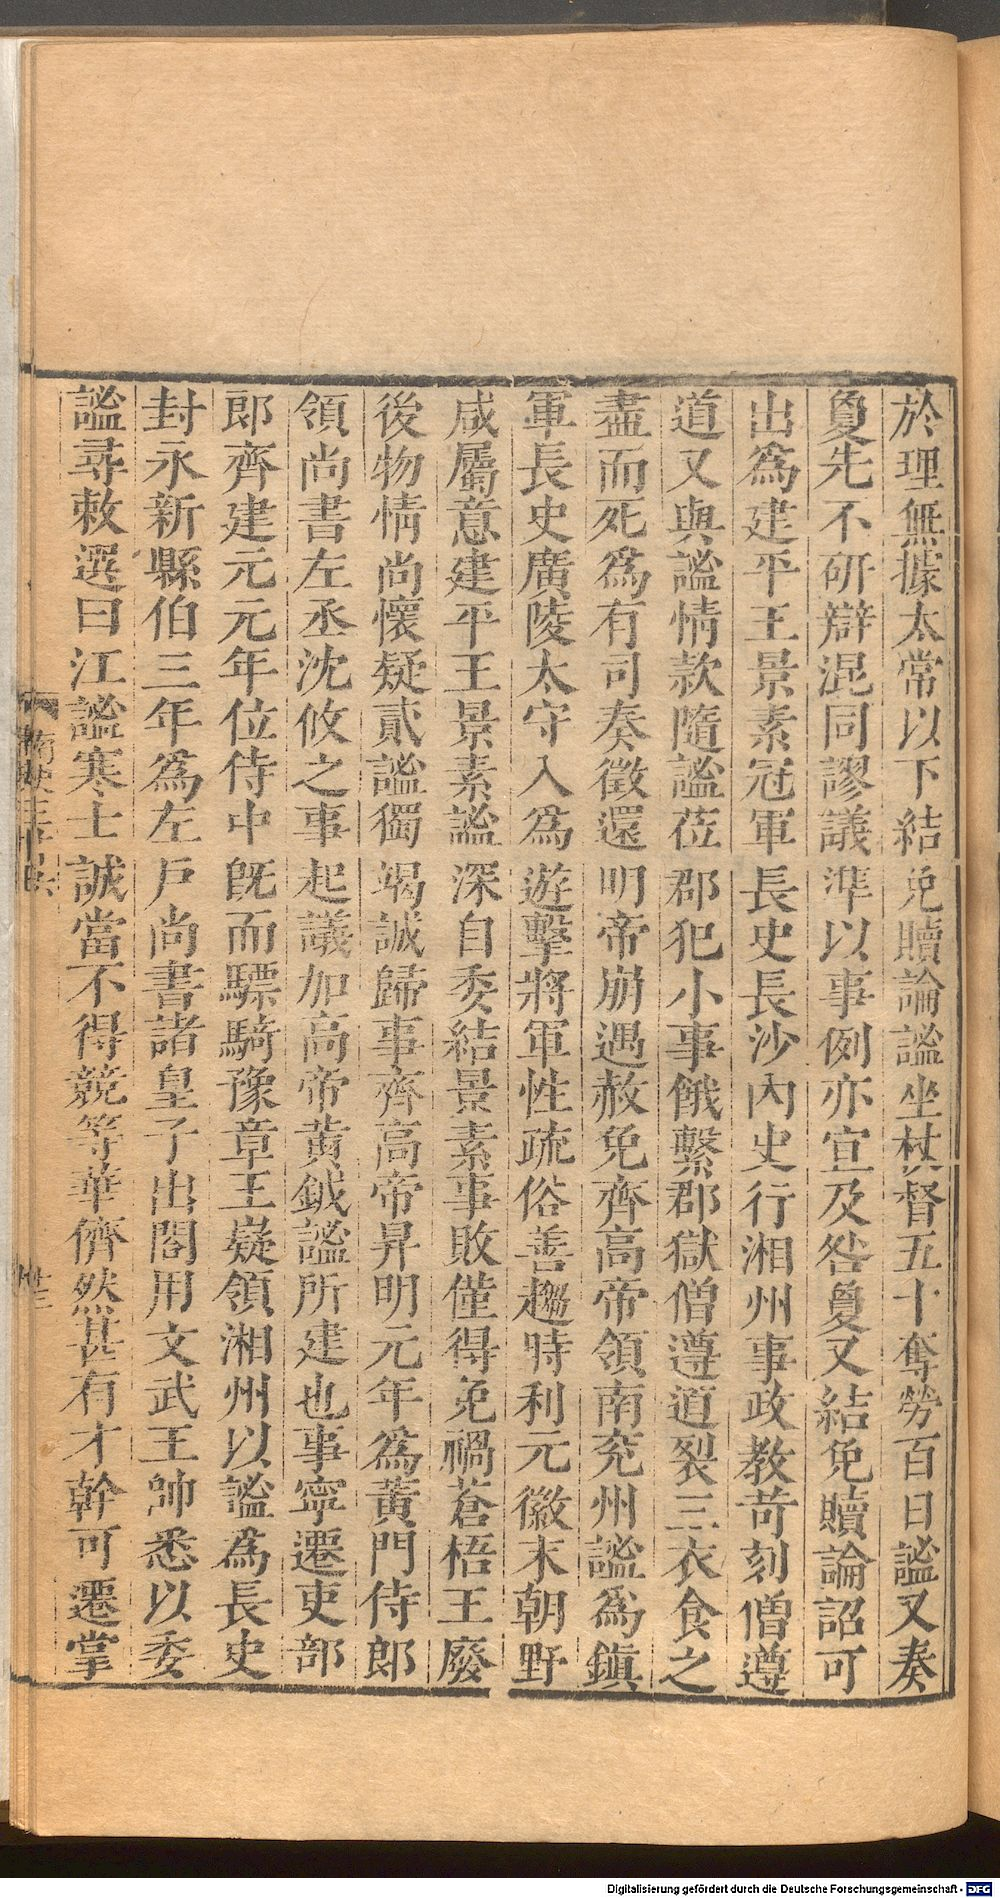 於理無據太常以下結免贖論謐坐杖督五十奪勞百日謐又奏
夐先不研辯混同謬議準以事例亦宜及咎夐又結免贖論詔可
出爲建平王景素冠軍長史長沙內史行湘州事政教苛刻僧遵
道又與謐情款隨謐莅郡犯小事餓繫郡獄僧遵道裂三衣食之
盡而死爲有司奏徵還明帝崩遇赦免齊高帝領南兖州謐爲鎭
軍長史廣陵太守入爲遊擊將軍性疏俗善趨時利元徽末朝野
咸屬意建平王景素謐深自委結景素事敗僅得免禍蒼梧王廢
後物情尚懷疑貳謐獨竭誠歸事齊高帝昇明元年爲黃門侍郎
領尚書左丞沈攸之事起議加高帝黃鉞謐所建也事寧遷吏部
郎齊建元元年位侍中旣而驃騎豫章王嶷領湘州以謐爲長史
封永新縣伯三年爲左戶尚書諸皇子出閤用文武王帥悉以委
謐尋敕選曰江謐寒士誠當不得競等華儕然甚有才幹可遷掌
南史三十六
廿三
Digitalisierung gefördert durch die Deutsche Forschungsgemeinschaft - DFG